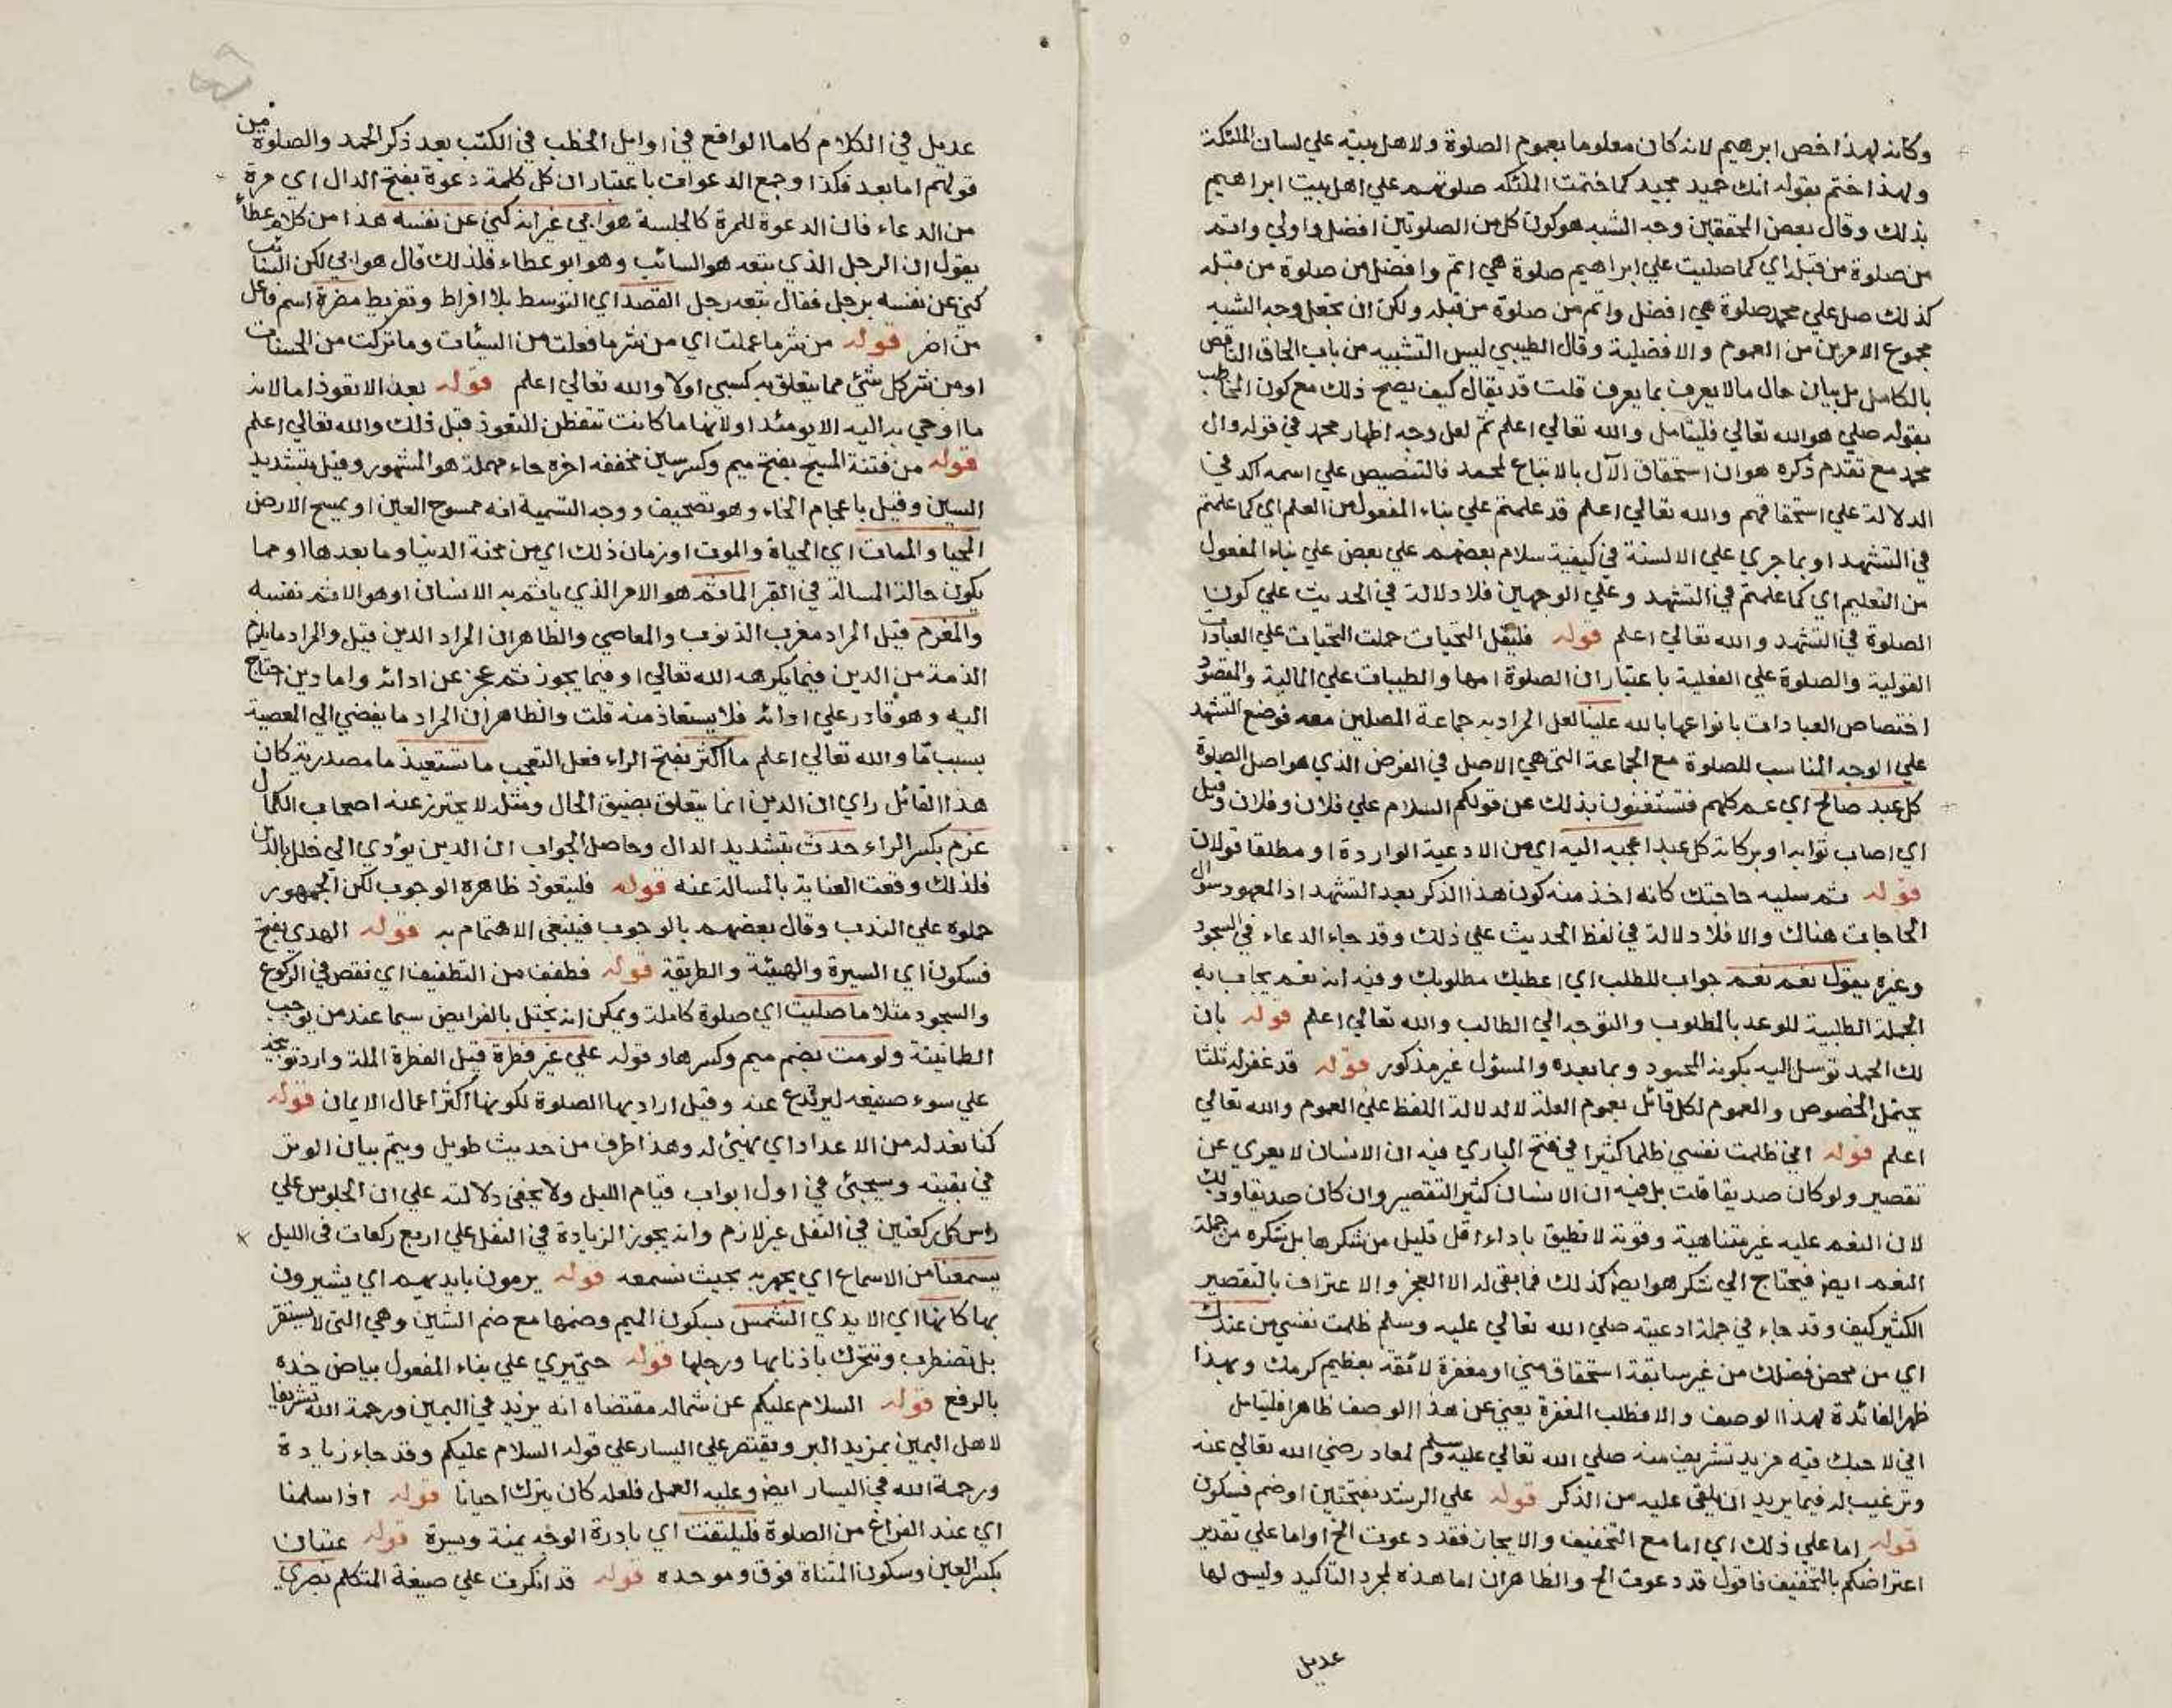 وكانه لهذا خص ابرهيم لانه كان معلوما بعموم الصلوة ولاهل بيته علي لسان الملئكة
ولهذا ختم بقوله انك حميد مجيد كما ختمت الملئكه صلوتهم علي اهل بيت ابراهيم
بذلك وقال بعض المحققين وجه الشبه هو كون كل من الصلوتين افضل واولي واتم
من صلوة من قبله اي كما صليت علي ابراهيم صلوة هي اتم وافضل من صلوة من قبله
كذلك صل علي محمد صلوة هي افضل واتم من صلوة من قبله ولكن ان تجعل وجه الشبه
مجموع الامرين من العموم والافضلية وقال الطيبي ليس التشبيه من باب الحاق الناقص
بالكامل بل بيان حال مالا يعرف بما يعرف قلت قد يقال كيف يصح ذلك مع كون المخاطب
بقوله صلي هو الله تعالي فليتامل والله تعالي اعلم ثم لعل وجه اظهار محمد في قوله وال
محمد مع تقدم ذكره هو ان استحقاق الآل بالاتباع لمحمد فالتنصيص علي اسمه اكد في
الدلالة علي استحقاقهم والله تعالي اعلم قد علمتم علي بناء المفعول من العلم اي كما علمتم
في التشهد او بما جري علي الالسنة في كيفية سلام بعضهم علي بعض علي بناء المفعول
من التعليم اي كما علمتم في التشهد وعلي الوجهين فلا دلالة في الحديث علي كون
الصلوة في التشهد والله تعالي اعلم قوله فليقل التحيات حملت التحيات علي العبادات
القولية والصلوة علي الفعلية باعتبار ان الصلوة امها والطيبات علي المالية والمقصود
اختصاص العبادات بانواعها بالله علينا لعل المراد به جماعة المصلين معه فوضع التشهد
علي الوجه المناسب للصلوة مع الجماعة التي هي الاصل في الفرض الذي هو اصل الصلوة
كل عبد صالح اي عمم كلهم فتستغنون بذلك عن قولكم السلام علي فلان وفلان وقيل
اي اصاب ثوابه او بركاته كل عبد اعجبه اليه اي من الادعية الواردة او مطلقا قولان
قوله ثم سليه حاجتك كانه اخذ منه كون هذا الذكر بعد التشهد اذ المعهود سوال
الحاجات هناك والا فلا دلالة في لفظ الحديث علي ذلك وقد جاء الدعاء في السجود
وغيره يقول نعم نعم جواب للطلب اي اعطيك مطلوبك وفيه انه نعم يجاب به
الجملة الطلبية للوعد بالمطلوب والتوجه الي الطالب والله تعالي اعلم قوله بان
لك الحمد توسل اليه بكونه المحمود وبما بعده والمسؤل غير مذكور قوله قد غفر له ثلثا
يحتمل الخصوص والعموم لكل قائل بعموم العلة لا لدلالة اللفظ علي العموم والله تعالي
اعلم قوله اني ظلمت نفسي ظلما كثيرا في فتح الباري فيه ان الانسان لا يعري عن
تقصير ولو كان صديقا قلت بل فيه ان الانسان كثير التقصير وان كان صديقا وذلك
لان النعم عليه غير متناهية وقوته لا تطيق باداء اقل قليل من شكرها بل شكره من جملة
النعم ايضا فيحتاج الي شكر هو ايضا كذلك فما بقي له الا العجز والاعتراف بالتقصير
الكثير كيف وقد جاء في جملة ادعيته صلي الله تعالي عليه وسلم ظلمت نفسي من عندك
اي من محض فضلك من غير سابقة استحقاق مني او مغفرة لائقة بعظيم كرمك وبهذا
ظهر الفائدة لهذا الوصف والا فطلب المغفرة يغني عن هذا الوصف ظاهرا فليتامل
اني لاحبك فيه مزيد تشريف منه صلي الله تعالي عليه وسلم لمعاذ رضي الله تعالي عنه
وترغيب له فيما يريد ان يلقي عليه من الذكر قوله علي الرشد بفتحتين او ضم فسكون
قوله اما علي ذلك اي اما مع التخفيف والايجاز فقد دعوت الخ او اما علي تقدير
اعتراضكم بالتخفيف فاقول قد دعوت الخ والظاهر ان اما هذه لمجرد التاكيد وليس لها
عديل
عديل في الكلام كاما الواقع في اوايل الخطب في الكتب بعد ذكر الحمد والصلوة من
قولهم اما بعد فكذا وجمع الدعوات باعتبار ان كل كلمة دعوة بفتح الدال اي مرة
من الدعاء فان الدعوة للمرة كالجلسة هو ابي غير انه كني عن نفسه هذا من كلام عطاء
يقول ان الرجل الذي يتعه هو السائب وهو ابو عطاء فلذلك قال هو ابي لكن السائب
كني عن نفسه برجل فقال يتعه رجل القصد اي التوسط بلا افراط وتفريط مضرة اسم فاعل
من اضر قوله من شر ما عملت اي من شر ما فعلت من السيئات وما تركت من الحسنات
او من شر كل شئ مما يتعلق به كسبي اولا والله تعالي اعلم قوله بعد الا تعوذ اما لانه
ما اوحي به اليه الا يومئذ او لانها ما كانت تتفطن للتعوذ قبل ذلك والله تعالي اعلم
قوله من فتنة المسيح بفتح ميم وكسر سين مخففه اخره حاء مهملة هو المشهور وقيل بتشديد
السين وقيل باعجام الخاء وهو تصحيف ووجه التسمية انه ممسوح العين او يمسح الارض
المحيا والممات اي الحياة والموت او زمان ذلك اي من محنة الدنيا وما بعدها او مما
يكون حالة المسالة في القبر الماثم هو الامر الذي ياثم به الانسان او هو الاثم نفسه
والمغرم قيل المراد مغرب الذنوب والمعاصي والظاهر ان المراد الدين قيل والمراد ما يلزم
الذمة من الدين فيما يكرهه الله تعالي او فيما يجوز ثم عجز عن ادائه واما دين احتاج
اليه وهو قادر علي ادائه فلا يستعاذ منه قلت والظاهر ان المراد ما يفضي الي المعصية
بسبب ما والله تعالي اعلم ما اكثر بفتح الراء فعل التعجب ما تستعيذ ما مصدرية كان
هذا القائل راي ان الدين انما يتعلق بضيق الحال ومثله لا يحترز عنه اصحاب الكمال
غرم بكسر الراء حدث بتشديد الدال وحاصل الجواب ان الدين يؤدي الي خلل بالدين
فلذلك وقعت العناية بالمسالة عنه قوله فليتعوذ ظاهره الوجوب لكن الجمهور
حملوه علي الندب وقال بعضهم بالوجوب فينبغي الاهتمام به قوله الهدي بفتح
فسكون اي السيرة والهيئة والطريقة قوله فطفف من التطفيف اي نقص في الركوع
والسجود مثلا ما صليت اي صلوة كاملة ويمكن انه يختل بالفرايض سيما عند من يوجب
الطمانينة ولو مت بضم ميم وكسرها وقوله علي غير فطرة قيل الفطرة الملة واراد توبيخه
علي سوء صنيعه ليرتدع عنه وقيل اراد بها الصلوة لكونها اكثر اعمال الايمان قوله
كنا نعد له من الاعداد اي نهيئ له وهذا طرف من حديث طويل ويتم بيان الوتر
في بقيته وسيجئ في اول ابواب قيام الليل ولا يخفي دلالته علي ان الجلوس علي
راس كل ركعتين في النفل غير لازم وانه يجوز الزيادة في النفل علي اربع ركعات في الليل
يسمعنا من الاسماع اي يجهر به بحيث نسمعه قوله يرمون بايديهم اي يشيرون
بها كانها اي الايدي الشمس بسكون الميم وضمها مع ضم الشين وهي التي لا تستقر
بل تضطرب وتتحرك باذنابها ورجلها قوله حتي يري علي بناء المفعول بياض خده
بالرفع قوله السلام عليكم عن شماله مقتضاه انه يزيد في اليمين ورحمة الله تشريفا
لاهل اليمين بمزيد البر ويقتصر علي اليسار علي قوله السلام عليكم وقد جاء زيادة
ورحمة الله في اليسار ايضا وعليه العمل فلعله كان يترك احيانا قوله اذا سلمنا
اي عند الفراغ من الصلوة فليلتفت اي بادرة الوجه يمنة ويسرة قوله عتبان
بكسر العين وسكون المثناة فوق وموحده قوله قد انكرت علي صيغة المتكلم بصري